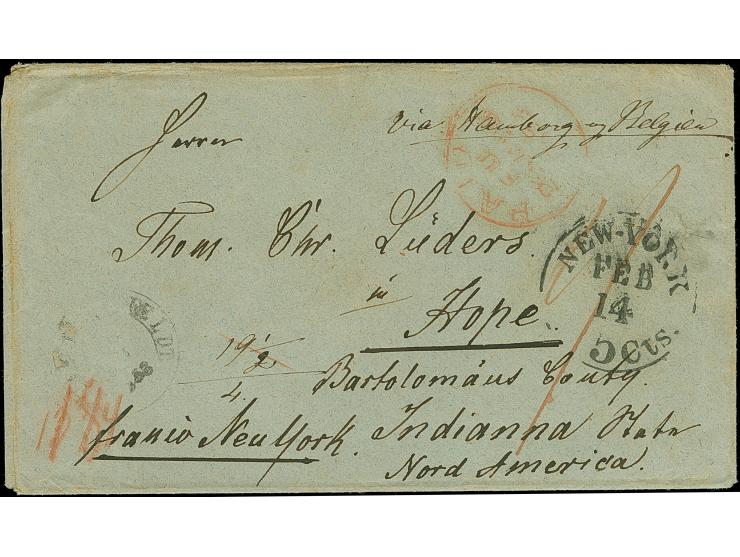 via Hamborg og Belgien
Herrn
PAID
Thom. Chr. Lüders.
in
NEW-YORK
FEB
14
5 Cts.
Hope.
19 1/2
4.
Bartolomäus Couty.
franco NeuYork. Indianna State
Nord America.